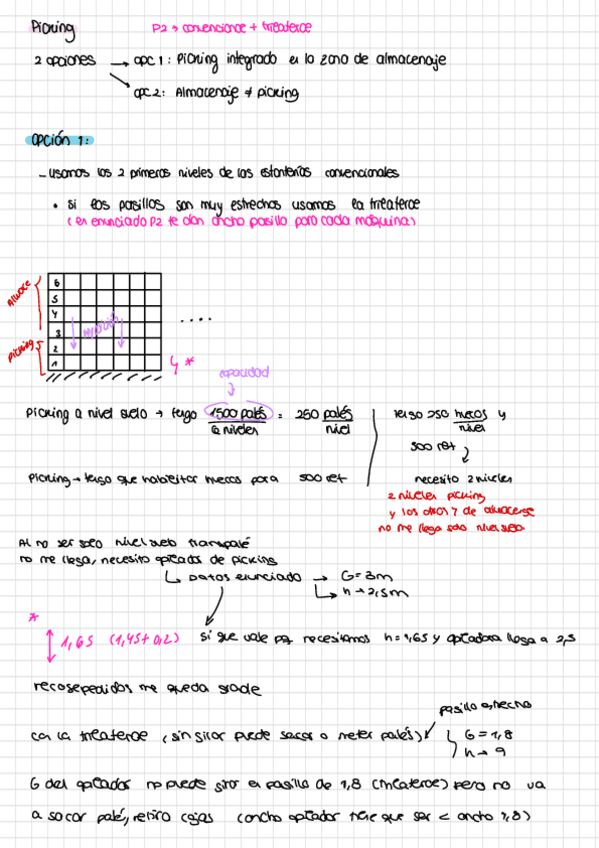 Picking
P2 → convencional + trilateral
2 opciones → opc 1: Picking integrado en la zona de almacenaje
opc 2: Almacenaje ≠ picking
Opción 1:
- usamos los 2 primeros niveles de las estanterías convencionales
• si los pasillos son muy estrechos usamos la trilateral
(en enunciado P2 te dan ancho pasillo para cada máquina)
Almace
6
5
4
3
Picking
2
1
....
*
capacidad
Picking a nivel suelo → tengo 1500 palés / 6 niveles = 250 palés / nivel
tengo 250 huecos / nivel y
500 ref
Picking → tengo que habilitar huecos para 500 ref
necesito 2 niveles
2 niveles picking
y los otros 7 de almacenaje
no me llega solo nivel suelo
Al no ser solo nivel suelo transpalé
no me llega, necesito apilados de picking
↳ Datos enunciado → G = 3m
↳ h → 2,5m
*
1,65 (1,45 + 0,2) si que vale pq necesitamos h = 1,65 y apiladora llega a 2,5
recogepedidos me queda grande
pasillo estrecho
con la trilateral (sin girar puede sacar o meter palés) G = 1,8
h → 9
G del apilador no puede girar en pasillo de 1,8 (trilateral) pero no va
a sacar palé, retira cajas (ancho apilador tiene que ser < ancho 1,8)